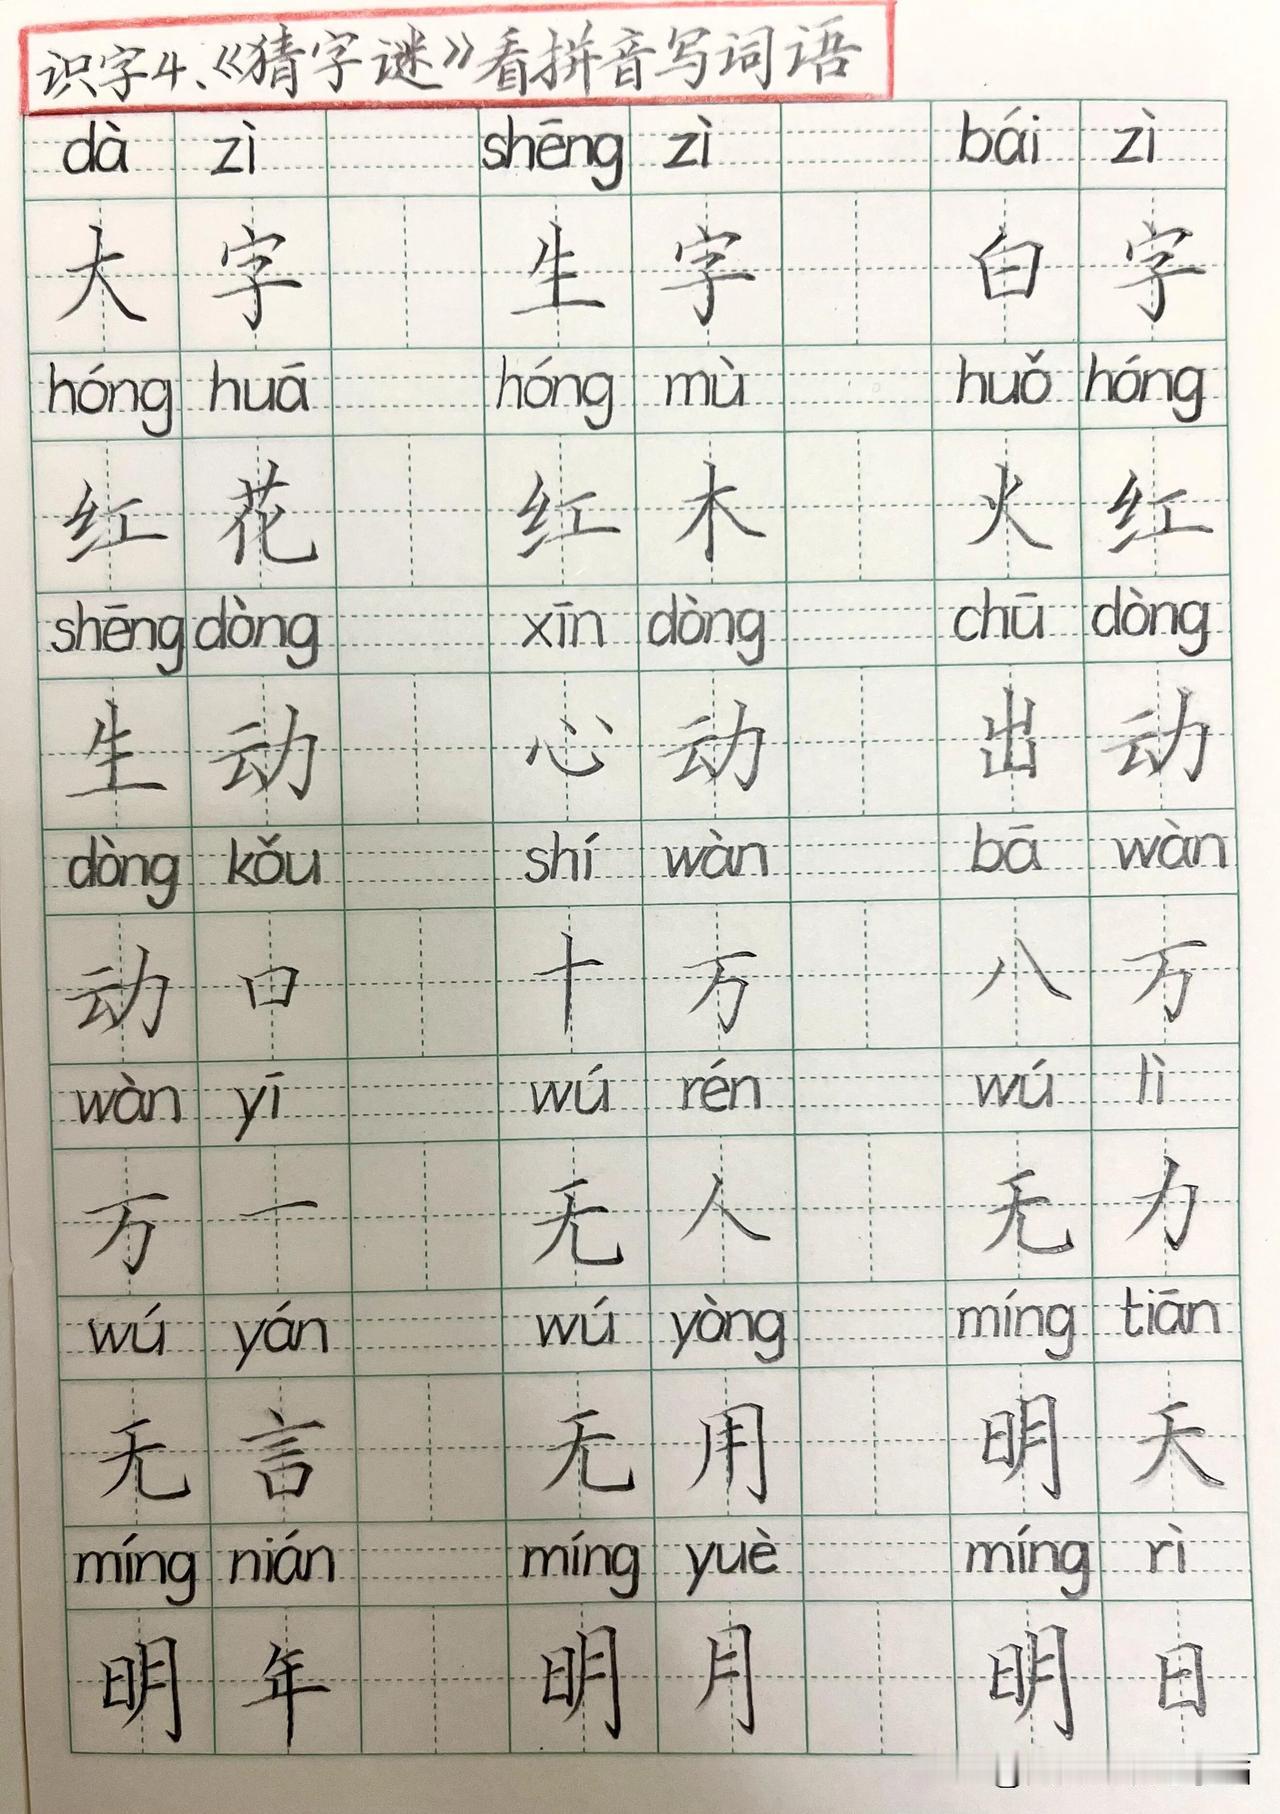 识字4、《猜字谜》看拼音写词语
dà zì shēng zì bái zì
大字 生字 白字
hóng huā hóng mù huǒ hóng
红花 红木 火红
shēng dòng xīn dòng chū dòng
生动 心动 出动
dòng kǒu shí wàn bā wàn
动口 十万 八万
wàn yī wú rén wú lì
万一 无人 无力
wú yán wú yòng míng tiān
无言 无用 明天
míng nián míng yuè míng rì
明年 明月 明日